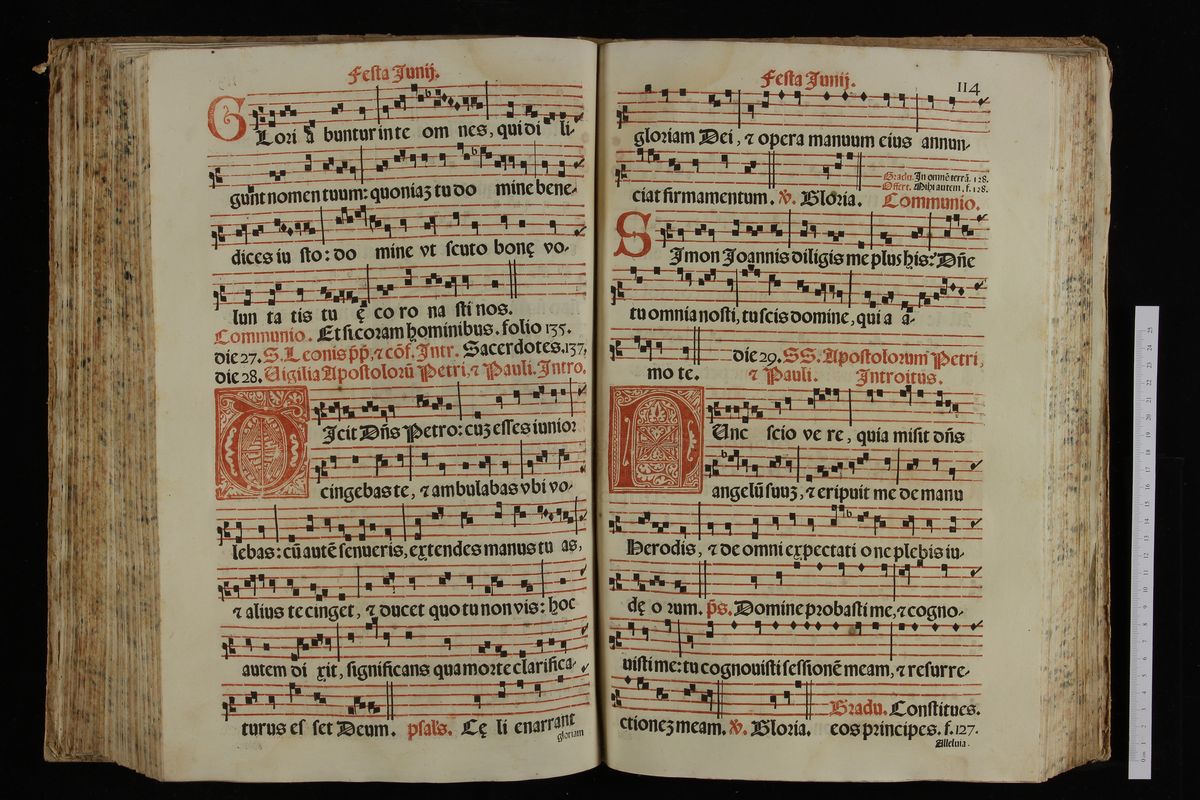 Festa Junij.
GLori a buntur in te om nes, qui di li-
gunt nomen tuum: quoniaʒ tu do mine bene-
dices iu sto: do mine vt scuto bonę vo-
lun ta tis tu ę co ro na sti nos.
Communio. Et si coram hominibus. folio 135.
die 27. S. Leonis p̄p̄, ⁊ cõf. Intr. Sacerdotes. 137,
die 28. Uigilia Apostolorũ Petri, ⁊ Pauli. Intro.
DIcit Dñs Petro: cuʒ esses iunior
cingebas te, ⁊ ambulabas vbi vo-
lebas: cũ autẽ senueris, extendes manus tu as,
⁊ alius te cinget, ⁊ ducet quo tu non vis: hoc
autem di xit, significans qua morte clarifica-
turus es set Deum. psals. Cę li enarrant
gloriam
Festa Junij.
114
gloriam Dei, ⁊ opera manuum eius annun-
ciat firmamentum. ℣. Gloria.
Gradu. In omnẽ terrã. 128.
Offert. Mihi autem. f. 128.
Communio.
SImon Joannis diligis me plus his? Dñe
tu omnia nosti, tu scis domine, qui a a-
mo te. die 29. SS. Apostolorum Petri,
⁊ Pauli. Introitus.
NUnc scio ve re, quia misit dñs
angelũ suuʒ, ⁊ eripuit me de manu
Herodis, ⁊ de omni expectati o ne plebis iu-
dę o rum. p̄s. Domine probasti me, ⁊ cogno-
uisti me: tu cognouisti sessionẽ meam, ⁊ resurre-
ctioneʒ meam. ℣. Gloria. Gradu. Constitues.
eos principes. f. 127.
Alleluia.